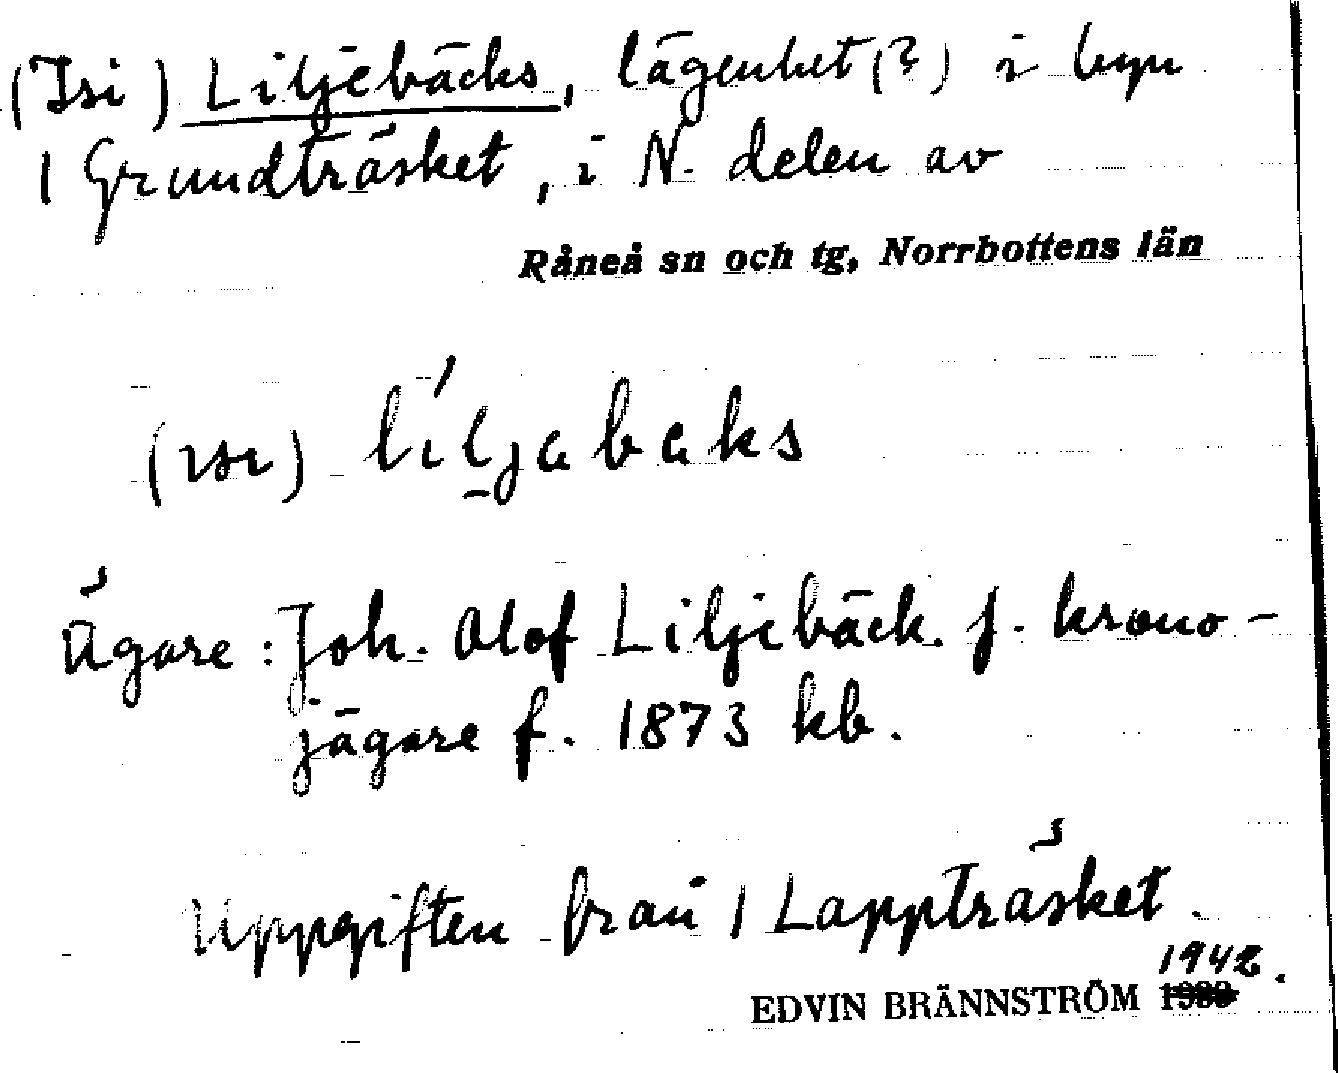 (Isi) Liljebäcks, lägenhet (?) i byn
1 Grundträsket, i N. delen av
Råneå sn och tg, Norrbottens län
(ısı) líljabaks
Ägare: Joh. Olof Liljebäck. f. krono-
jägare f. 1873 kb.
Uppgiften från 1 Lappträsket.
1942.
EDVIN BRÄNNSTRÖM 1930